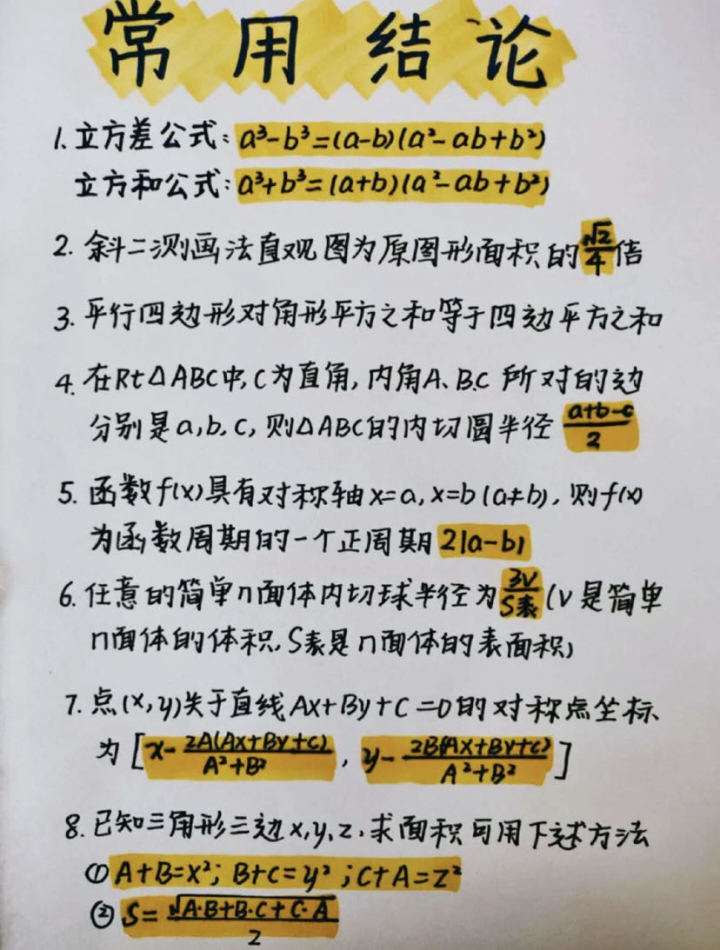 常用结论
1.立方差公式: a³-b³=(a-b)(a²-ab+b²)
立方和公式: a³+b³=(a+b)(a²-ab+b²)
2. 斜二测画法直观图为原图形面积的√2/4倍
3. 平行四边形对角形平方之和等于四边平方之和
4. 在Rt△ABC中,C为直角,内角A、B.C 所对的边
分别是a,b,c,则△ABC的内切圆半径 (a+b-c)/2
5. 函数f(x)具有对称轴x=a,x=b(a≠b),则f(x)
为函数周期的一个正周期 2|a-b|
6. 任意的简单n面体内切球半径为3V/S表(V是简单
n面体的体积,S表是n面体的表面积)
7. 点(x,y)关于直线Ax+By+C=0的对称点坐标
为[x-2A(Ax+By+C)/(A²+B²), y-2B(Ax+By+C)/(A²+B²)]
8. 已知三角形三边x,y,z,求面积可用下述方法
① A+B=x²; B+C=y²; C+A=z²
② S=√(A·B+B·C+C·A)/2